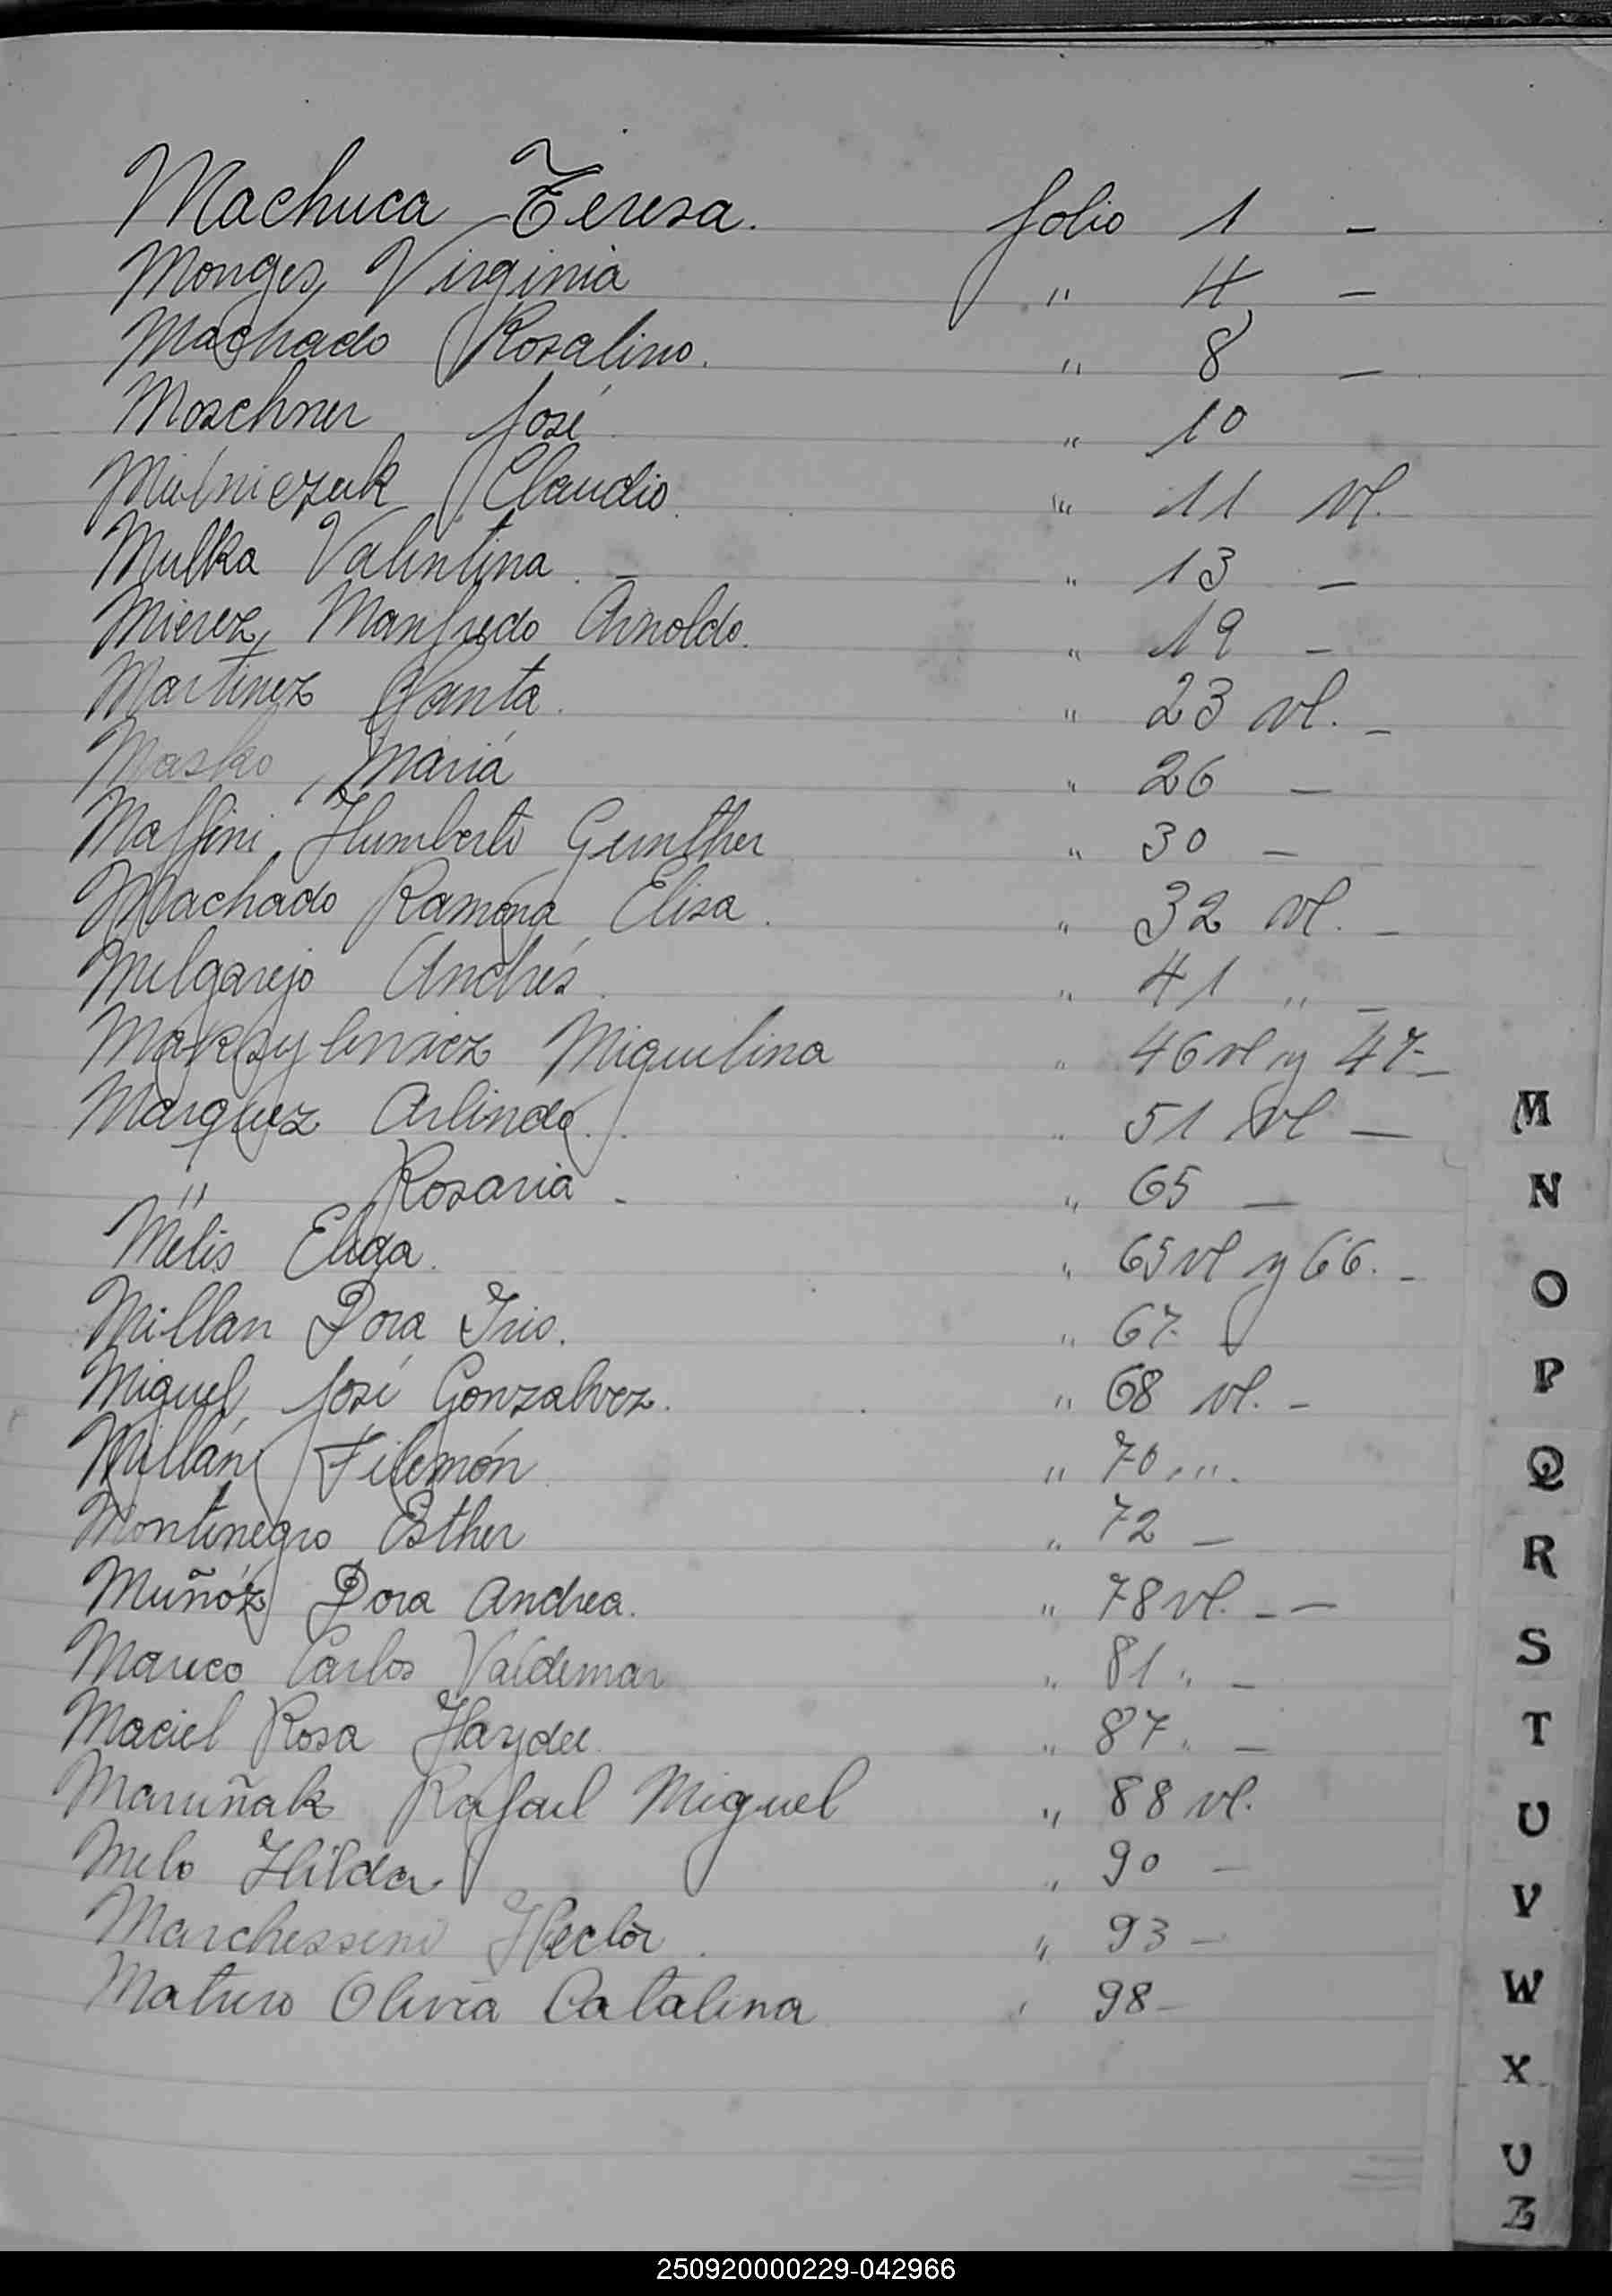 Machuca Teresa. folio 1 -
Monges, Virginia " 4 -
Machado Rosalino. " 8 -
Moschner José " 10
Mielniczuk Claudio. " 11 vl.
Mulka Valentina. - " 13 -
Mierez, Manfredo Arnoldo. " 19 -
Martinez Santa. " 23 vl. -
Masko, Maria " 26 -
Maffini, Humberto Gunther " 30 -
Machado Ramona Elisa. " 32 vl. -
Melgarejo Andrés. " 41 " -
Maksylewicz Miguelina " 46 vl y 47 -
Marquez Arlindo. " 51 vl -
" Rosaria - " 65 -
Melis Elida. " 65 vl y 66. -
Millan Dora Iris. " 67
Miguel, José Gonzalvez. " 68 vl. -
Millán, Filemón " 70 ".
Montenegro Esther " 72 -
Muñóz Dora Andrea. " 78 vl. - -
Mareco Carlos Valdemar " 81 " -
Maciel Rosa Haydee. " 87 " -
Maruñak Rafael Miguel " 88 vl.
Melo Hilda " 90 -
Hector. " 93 -
Maturo Olivia Catalina " 98 -
M
N
O
P
Q
R
S
T
U
V
W
X
Z
250920000229-042966